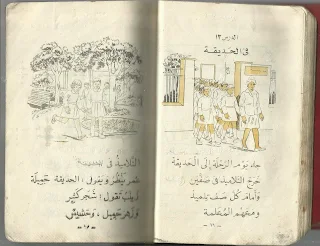 الدرس ١٣
في الحديقة
جاء يوم الرحلة إلى الحديقة
خرج التلاميذ في صفين
وأمام كل صف تلميذ
ومعهم المعلمة
التلاميذ في الحديقة
عمر ينظر ويقول: الحديقة جميلة
زينب تقول: شجر كثير
وزهر جميل، وحشيش